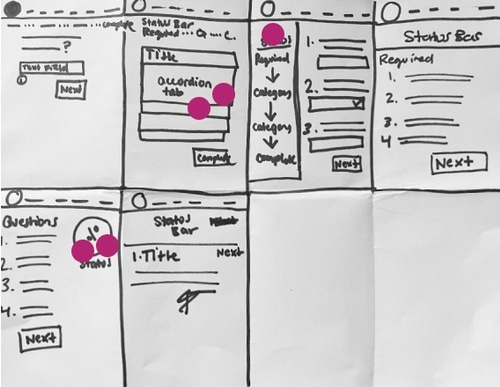 Complete
?
Text Field
Next
Status Bar
Required ... Q ... C.
Title
accordion
tab
Complete
Required
Category
Category
Complete
1.
2.
3.
Next
Status Bar
Required
1.
2.
3.
4
Next
Questions
1.
2.
3.
4.
Next
Status
Status
Bar
1. Title
Next